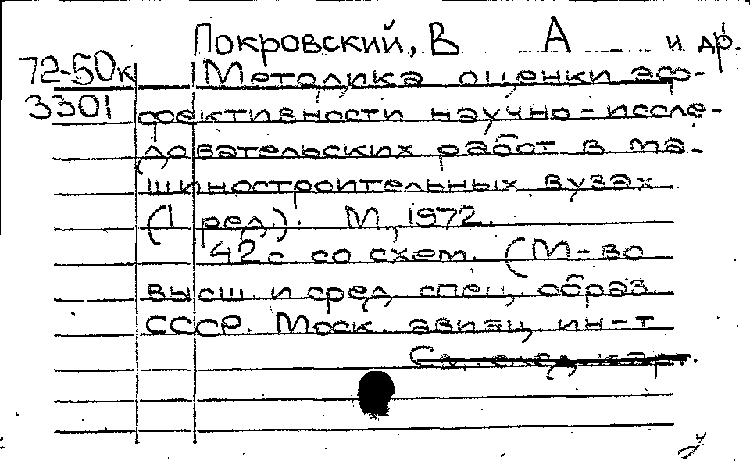 Покровский, В А и др.
72-50к Методика оценки эф-
3301 фективности научно-иссле-
довательских работ в ма-
шиностроительных вузах
(1 ред.). М, 1972.
42с со схем. (М-во
высш. и сред. спец. образ
СССР. Моск. авиац. ин-т
См. след. карт.